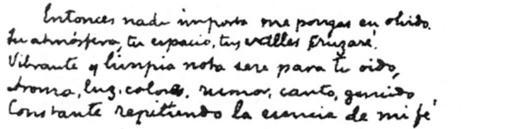 Entonces nada importa me pongas en olvido.
Tu atmósfera, tu espacio, tus valles cruzaré.
Vibrante y limpia nota seré para tu oido,
Aroma, luz, colores, rumor, canto, gemido
Constante repitiendo la esencia de mi fé